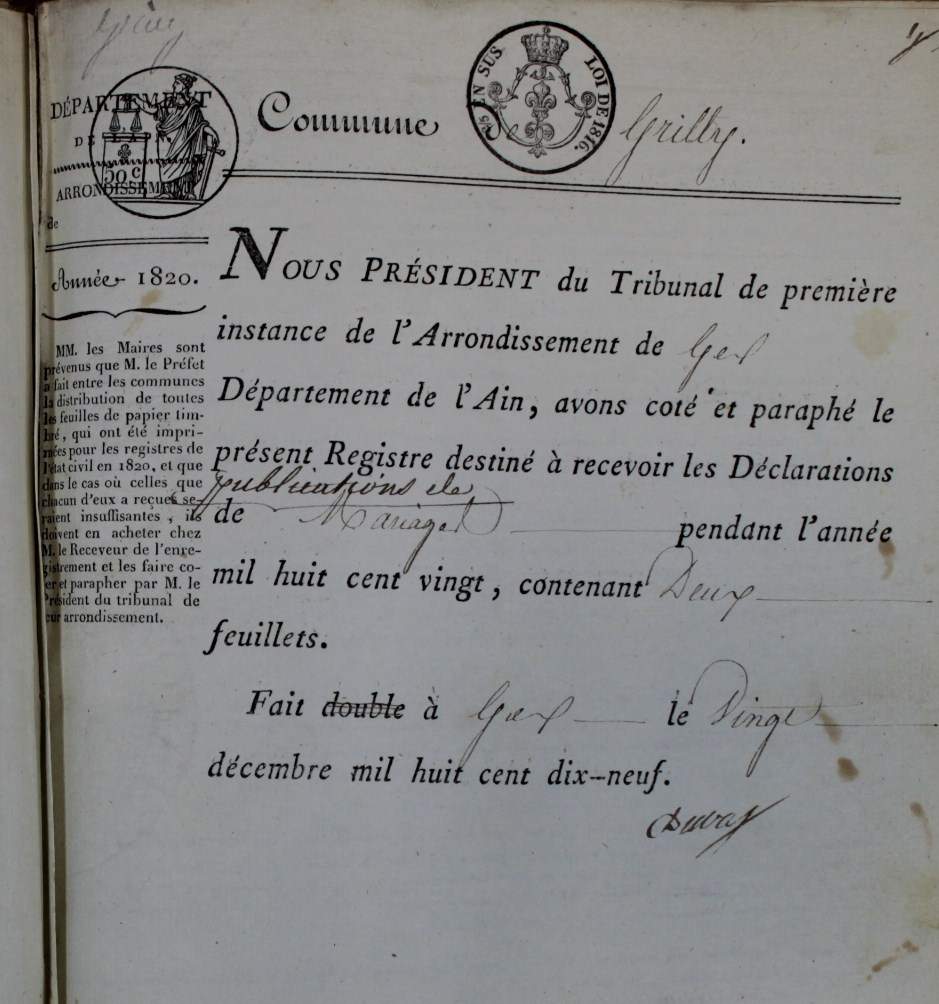 Grilly
DÉPARTEMENT
DE
ARRONDISSEMENT
de
50 C
Commune de Grilly.
2/5 EN SUS LOI DE 1816.
Année 1820.
MM. les Maires sont
prévenus que M. le Préfet
a fait entre les communes
la distribution de toutes
les feuilles de papier tim-
bré, qui ont été impri-
mées pour les registres de
l'état civil en 1820, et que
dans le cas où celles que
chacun d'eux a reçues se-
raient insuffisantes, ils
doivent en acheter chez
M. le Receveur de l'enre-
gistrement et les faire co-
ter et parapher par M. le
Président du tribunal de
leur arrondissement.
NOUS PRÉSIDENT du Tribunal de première
instance de l'Arrondissement de Gex
Département de l'Ain, avons coté et paraphé le
présent Registre destiné à recevoir les Déclarations
publications de
de Mariages pendant l'année
mil huit cent vingt, contenant Deux
feuillets.
Fait double à Gex le Vingt
décembre mil huit cent dix-neuf.